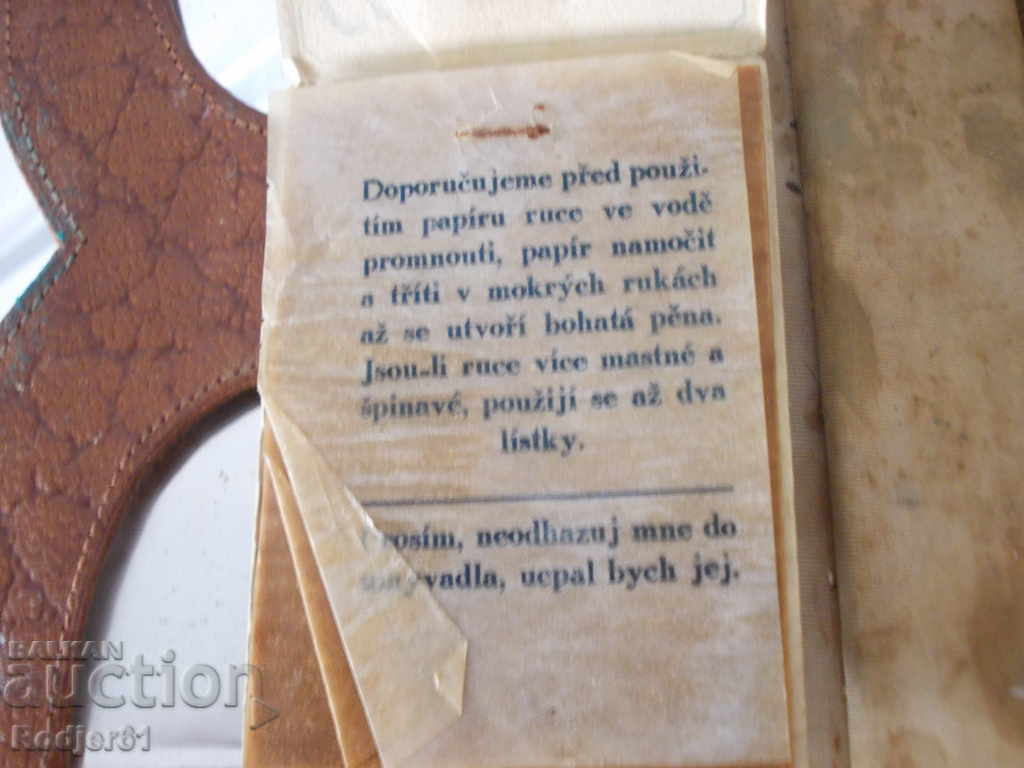 Doporučujeme před použi-
tím papíru ruce ve vodě
promnouti, papír namočit
a tříti v mokrých rukách
až se utvoří bohatá pěna.
Jsou-li ruce více mastné a
špinavé, použijí se až dva
lístky.
neodhazuj mne do
ucpal bych jej.
BALKAN
auction
Rodjer61